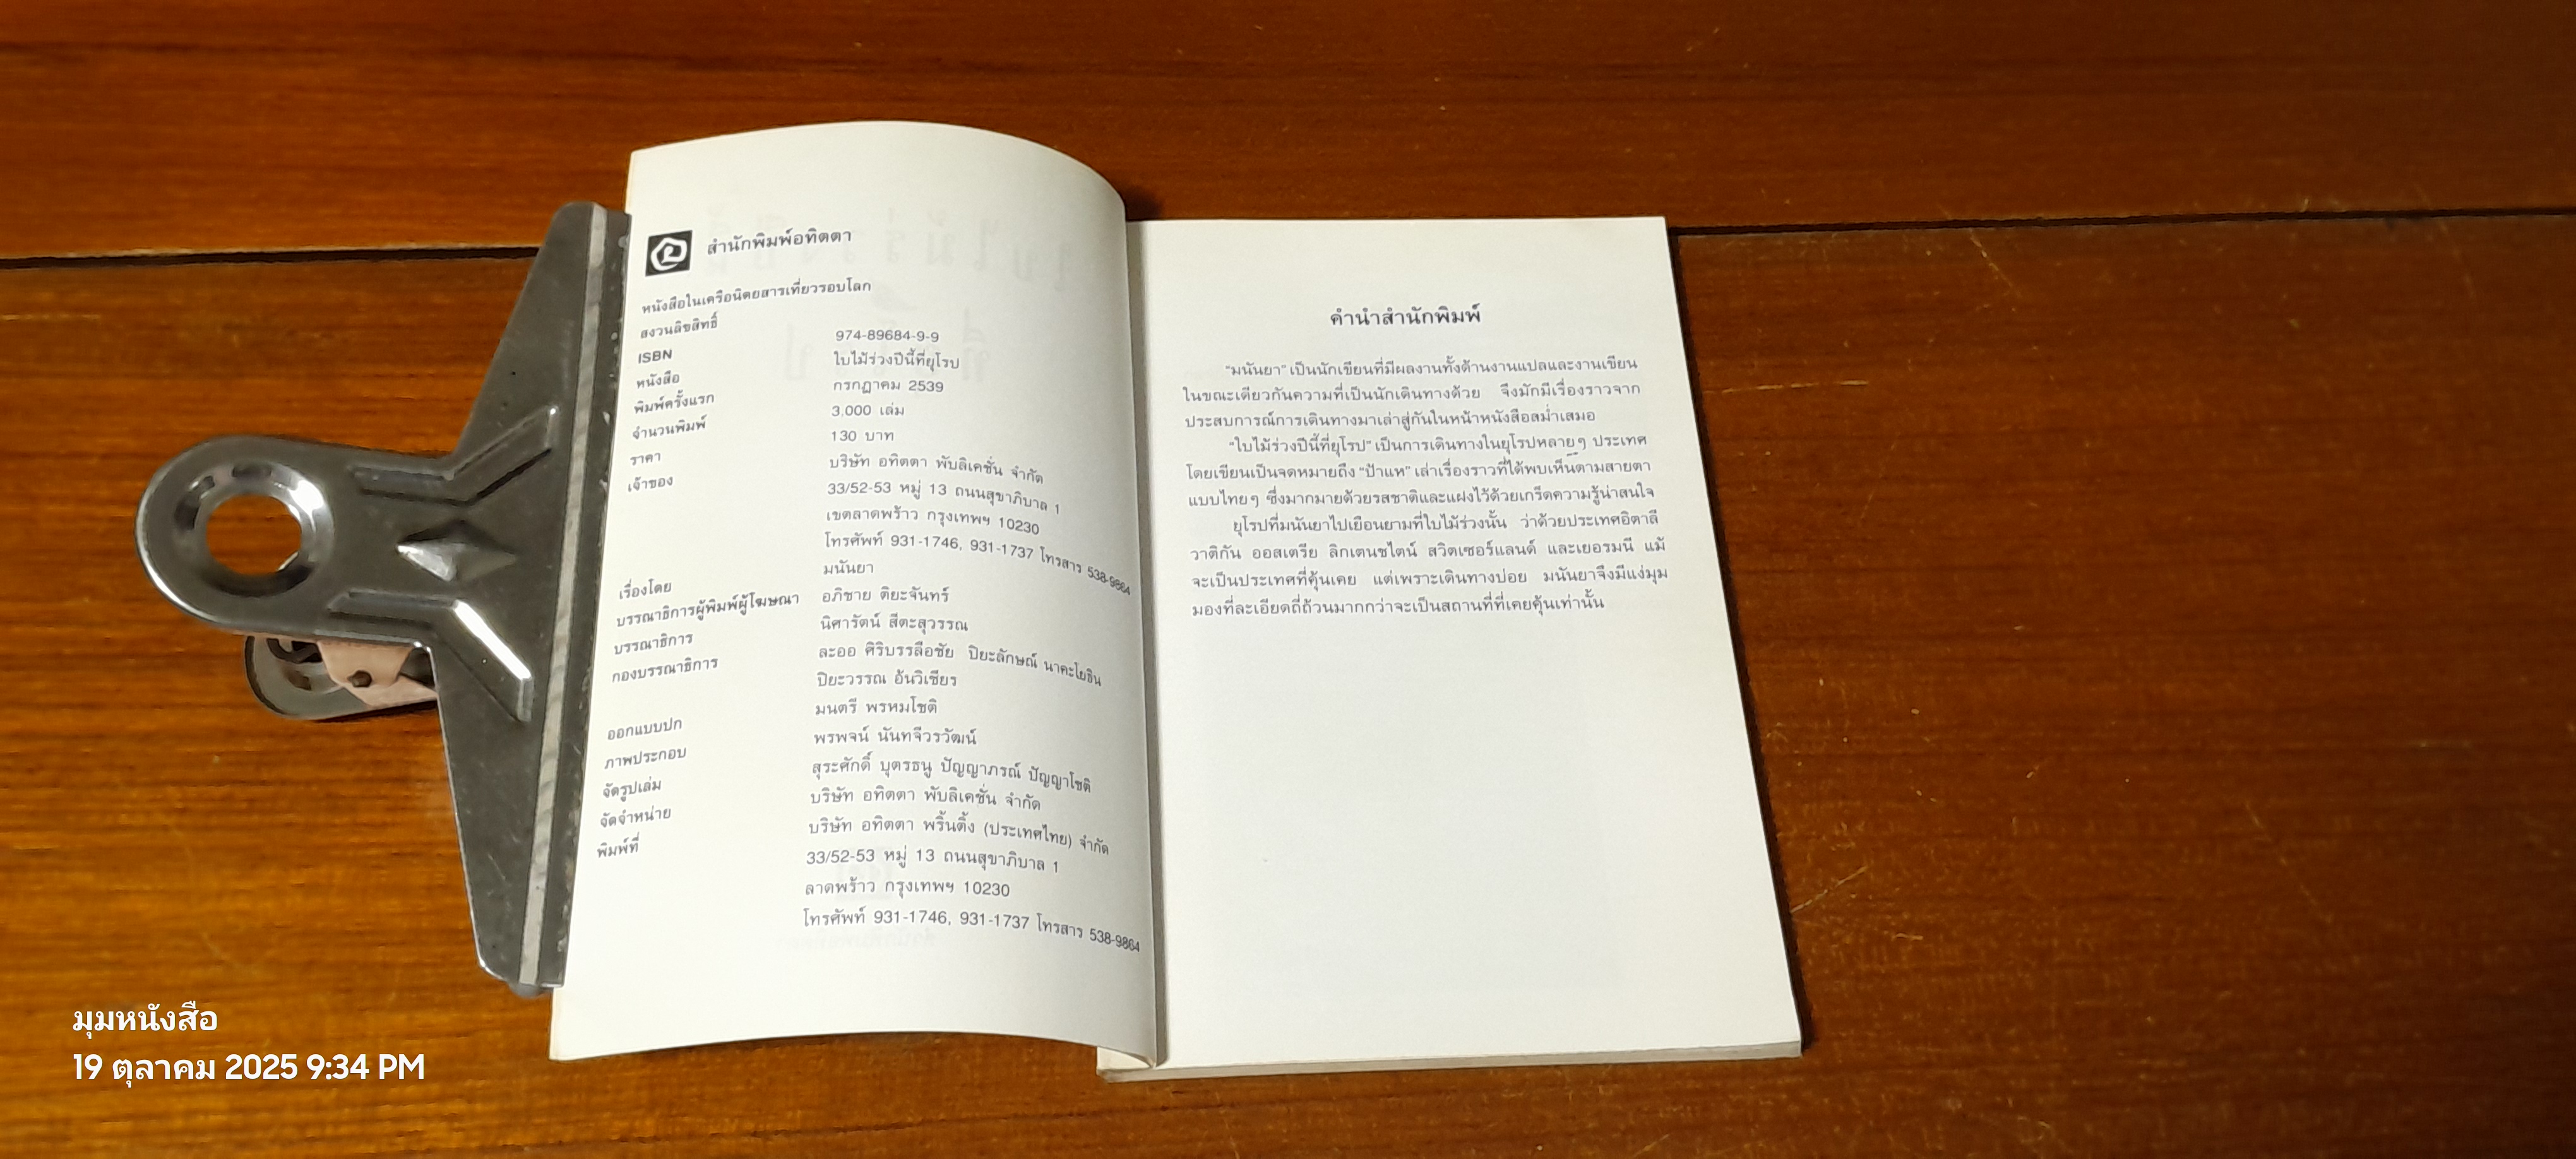 สำนักพิมพ์อทิตตา
หนังสือในเครือนิตยสารเที่ยวรอบโลก
สงวนลิขสิทธิ์
ISBN 974-89684-9-9
หนังสือ ใบไม้ร่วงปีนี้ที่ยุโรป
พิมพ์ครั้งแรก กรกฎาคม 2539
จำนวนพิมพ์ 3,000 เล่ม
ราคา 130 บาท
เจ้าของ บริษัท อทิตตา พับลิเคชั่น จำกัด
33/52-53 หมู่ 13 ถนนสุขาภิบาล 1
เขตลาดพร้าว กรุงเทพฯ 10230
โทรศัพท์ 931-1746, 931-1737 โทรสาร 538-9864
เรื่องโดย มนันยา
บรรณาธิการผู้พิมพ์ผู้โฆษณา อภิชาย ติยะจันทร์
บรรณาธิการ นิศารัตน์ สีตะสุวรรณ
กองบรรณาธิการ ละออ ศิริบรรลือชัย ปิยะลักษณ์ นาคะโยธิน
ปิยะวรรณ อ้นวิเชียร
ออกแบบปก มนตรี พรหมโชติ
ภาพประกอบ พรพจน์ นันทจีวรวัฒน์
จัดรูปเล่ม สุระศักดิ์ บุตรธนู ปัญญาภรณ์ ปัญญาโชติ
จัดจำหน่าย บริษัท อทิตตา พับลิเคชั่น จำกัด
พิมพ์ที่ บริษัท อทิตตา พริ้นติ้ง (ประเทศไทย) จำกัด
33/52-53 หมู่ 13 ถนนสุขาภิบาล 1
ลาดพร้าว กรุงเทพฯ 10230
โทรศัพท์ 931-1746, 931-1737 โทรสาร 538-9864
คำนำสำนักพิมพ์
"มนันยา" เป็นนักเขียนที่มีผลงานทั้งด้านงานแปลและงานเขียน
ในขณะเดียวกันความที่เป็นนักเดินทางด้วย จึงมักมีเรื่องราวจาก
ประสบการณ์การเดินทางมาเล่าสู่กันในหน้าหนังสือสม่ำเสมอ
"ใบไม้ร่วงปีนี้ที่ยุโรป" เป็นการเดินทางในยุโรปหลายๆ ประเทศ
โดยเขียนเป็นจดหมายถึง "ป้าแห" เล่าเรื่องราวที่ได้พบเห็นตามสายตา
แบบไทยๆ ซึ่งมากมายด้วยรสชาติและแฝงไว้ด้วยเกร็ดความรู้น่าสนใจ
ยุโรปที่มนันยาไปเยือนยามที่ใบไม้ร่วงนั้น ว่าด้วยประเทศอิตาลี
วาติกัน ออสเตรีย ลิกเตนชไตน์ สวิตเซอร์แลนด์ และเยอรมนี แม้
จะเป็นประเทศที่คุ้นเคย แต่เพราะเดินทางบ่อย มนันยาจึงมีแง่มุม
มองที่ละเอียดถี่ถ้วนมากกว่าจะเป็นสถานที่ที่เคยคุ้นเท่านั้น
มุมหนังสือ
19 ตุลาคม 2025 9:34 PM